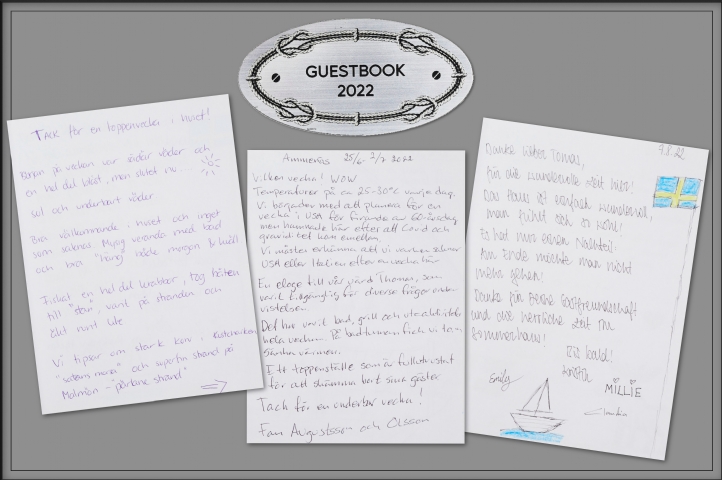 GUESTBOOK
2022
TACK för en toppenvecka i huset!
Början på veckan var sådär väder och
en hel del blåst, men slutet nu...
sol och underbart väder
Bra välkomnande i huset och inget
som saknas. Mysig veranda med bad
och bra "häng" både morgon & kväll
Fiskat en hel del krabbor, tog båten
till "stan", varit på stranden och
åkt runt lite
Vi tipsar om stark korv i
och superfin strand på
Malmön - "pärlans strand"
Ammenäs 25/6- 2/7 2022
Vilken vecka! WOW
Temperaturer på ca 25-30°C varje dag.
Vi begav med att planera för en
vecka i USA för firande av 60-årsdag
men hamnade här efter att Covid och
graviditet kom emellan.
Vi måste erkänna att vi varken saknar
USA eller Italien efter en vecka här
En eloge till vår värd Thomas, som
varit tillgänglig för diverse frågor under
vistelsen.
Det har varit bad, grill och uteaktiviteter
hela veckan. På badtunnan fick vi ta in
värmen.
Ett toppenställe som är fulländat
för att skämma bort sina gäster
Tack för en underbar vecka!
Fam Augustsson och Olsson
7.8.22
Danke lieber Tomas,
für die wundervolle Zeit hier!
Das Haus ist einfach wundervoll,
man fühlt sich so wohl!
Es hat nur einen Nachteil:
Am Ende möchte man nicht
mehr gehen!
Danke für Deine Gastfreundschaft
und die herrliche Zeit im
Sommerhaus!
Bis bald!
Kerstin
Emily
MILLIE
Claudia